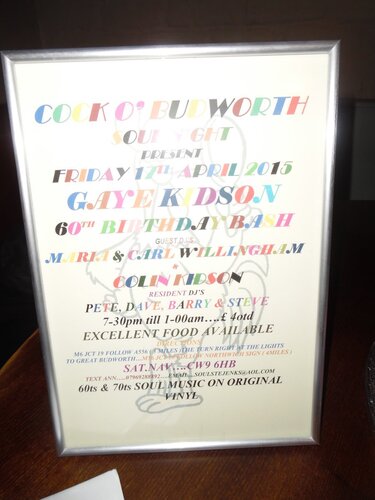 COCK O' BUDWORTH
SOUL NIGHT
PRESENT
FRIDAY 17TH APRIL 2015
GAYE KIDSON
60TH BIRTHDAY BASH
GUEST DJ,S
MARKT & CARL WILLINGHAM
COLIN KIDSON
RESIDENT DJ'S
PETE, DAVE, BARRY & STEVE
7-30pm till 1-00am....£ 4otd
EXCELLENT FOOD AVAILABLE
DIRECTIONS
M6 JCT 19 FOLLOW A556 MILES THE TURN RIGHT AT THE LIGHTS
TO GREAT BUDWORTH FOLLOW NORTHWICH SIGN ( 4MILES )
SAT.NAV....CW9 6HB
TEXT ANN EMAIL SOULSTEJENKS@AOL.COM
60ts & 70ts SOUL MUSIC ON ORIGINAL
VINYL